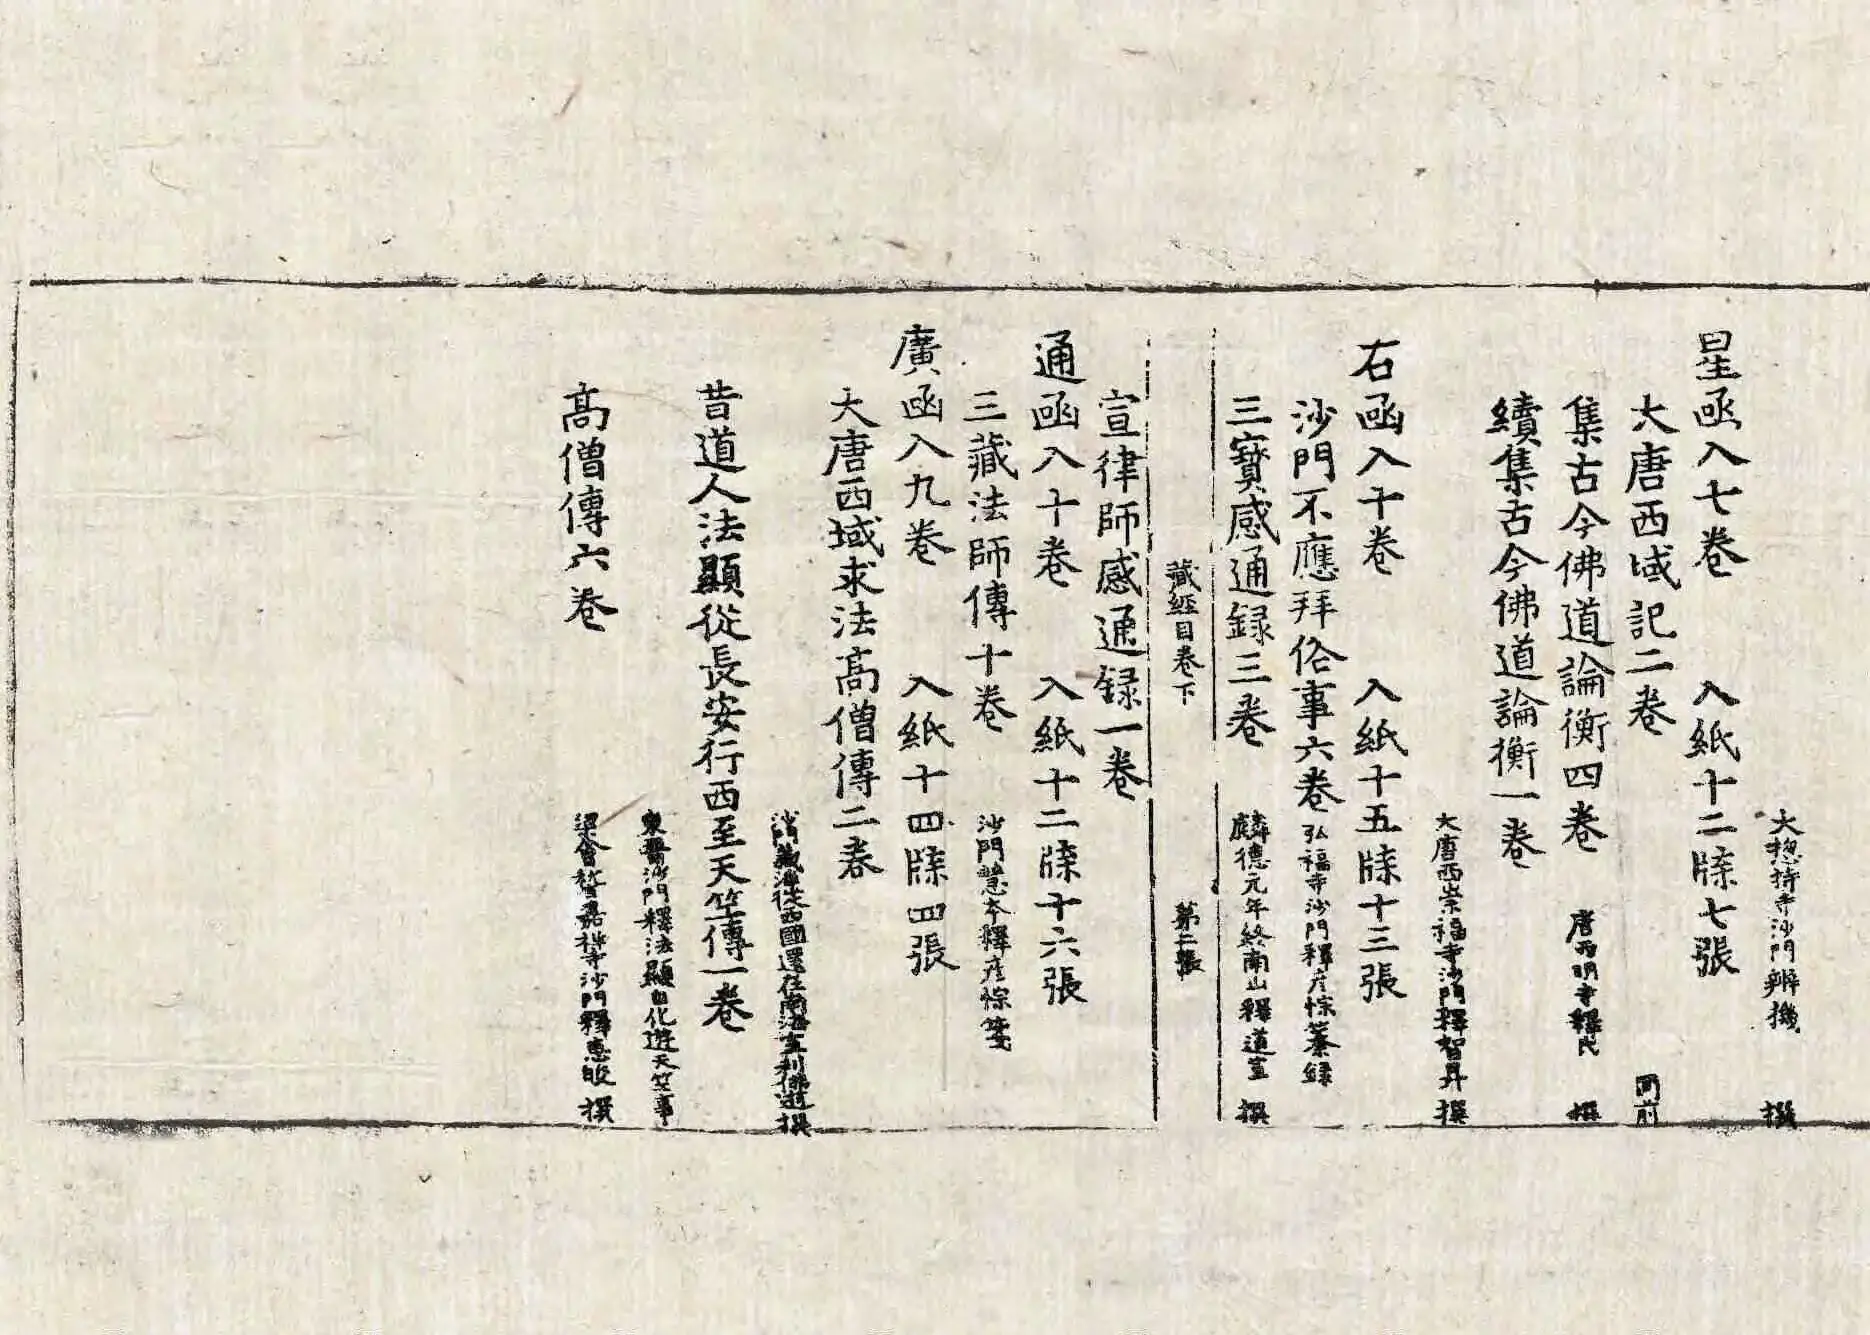 大揔持寺沙門辯機 撰
星函入七卷 入紙十二牒七張
大唐西域記二卷 同前
集古今佛道論衡四卷 唐西明寺釋氏 撰
續集古今佛道論衡一卷 大唐西崇福寺沙門釋智昇 撰
右函入十卷 入紙十五牒十三張
沙門不應拜俗事六卷 弘福寺沙門釋彦悰纂録
三寶感通録三卷 麟德元年終南山釋道宣 撰
藏經目卷下 第二張
宣律師感通録一卷
通函入十卷 入紙十二牒十六張
三藏法師傳十卷 沙門慧本釋彦悰箋
廣函入九卷 入紙十四牒四張
大唐西域求法高僧傳二卷 沙門義淨從西國還在南海室利佛逝撰
昔道人法顯從長安行西至天竺傳一卷
東晉沙門釋法顯自化遊天竺事
高僧傳六卷 梁會稽嘉祥寺沙門釋惠皎 撰